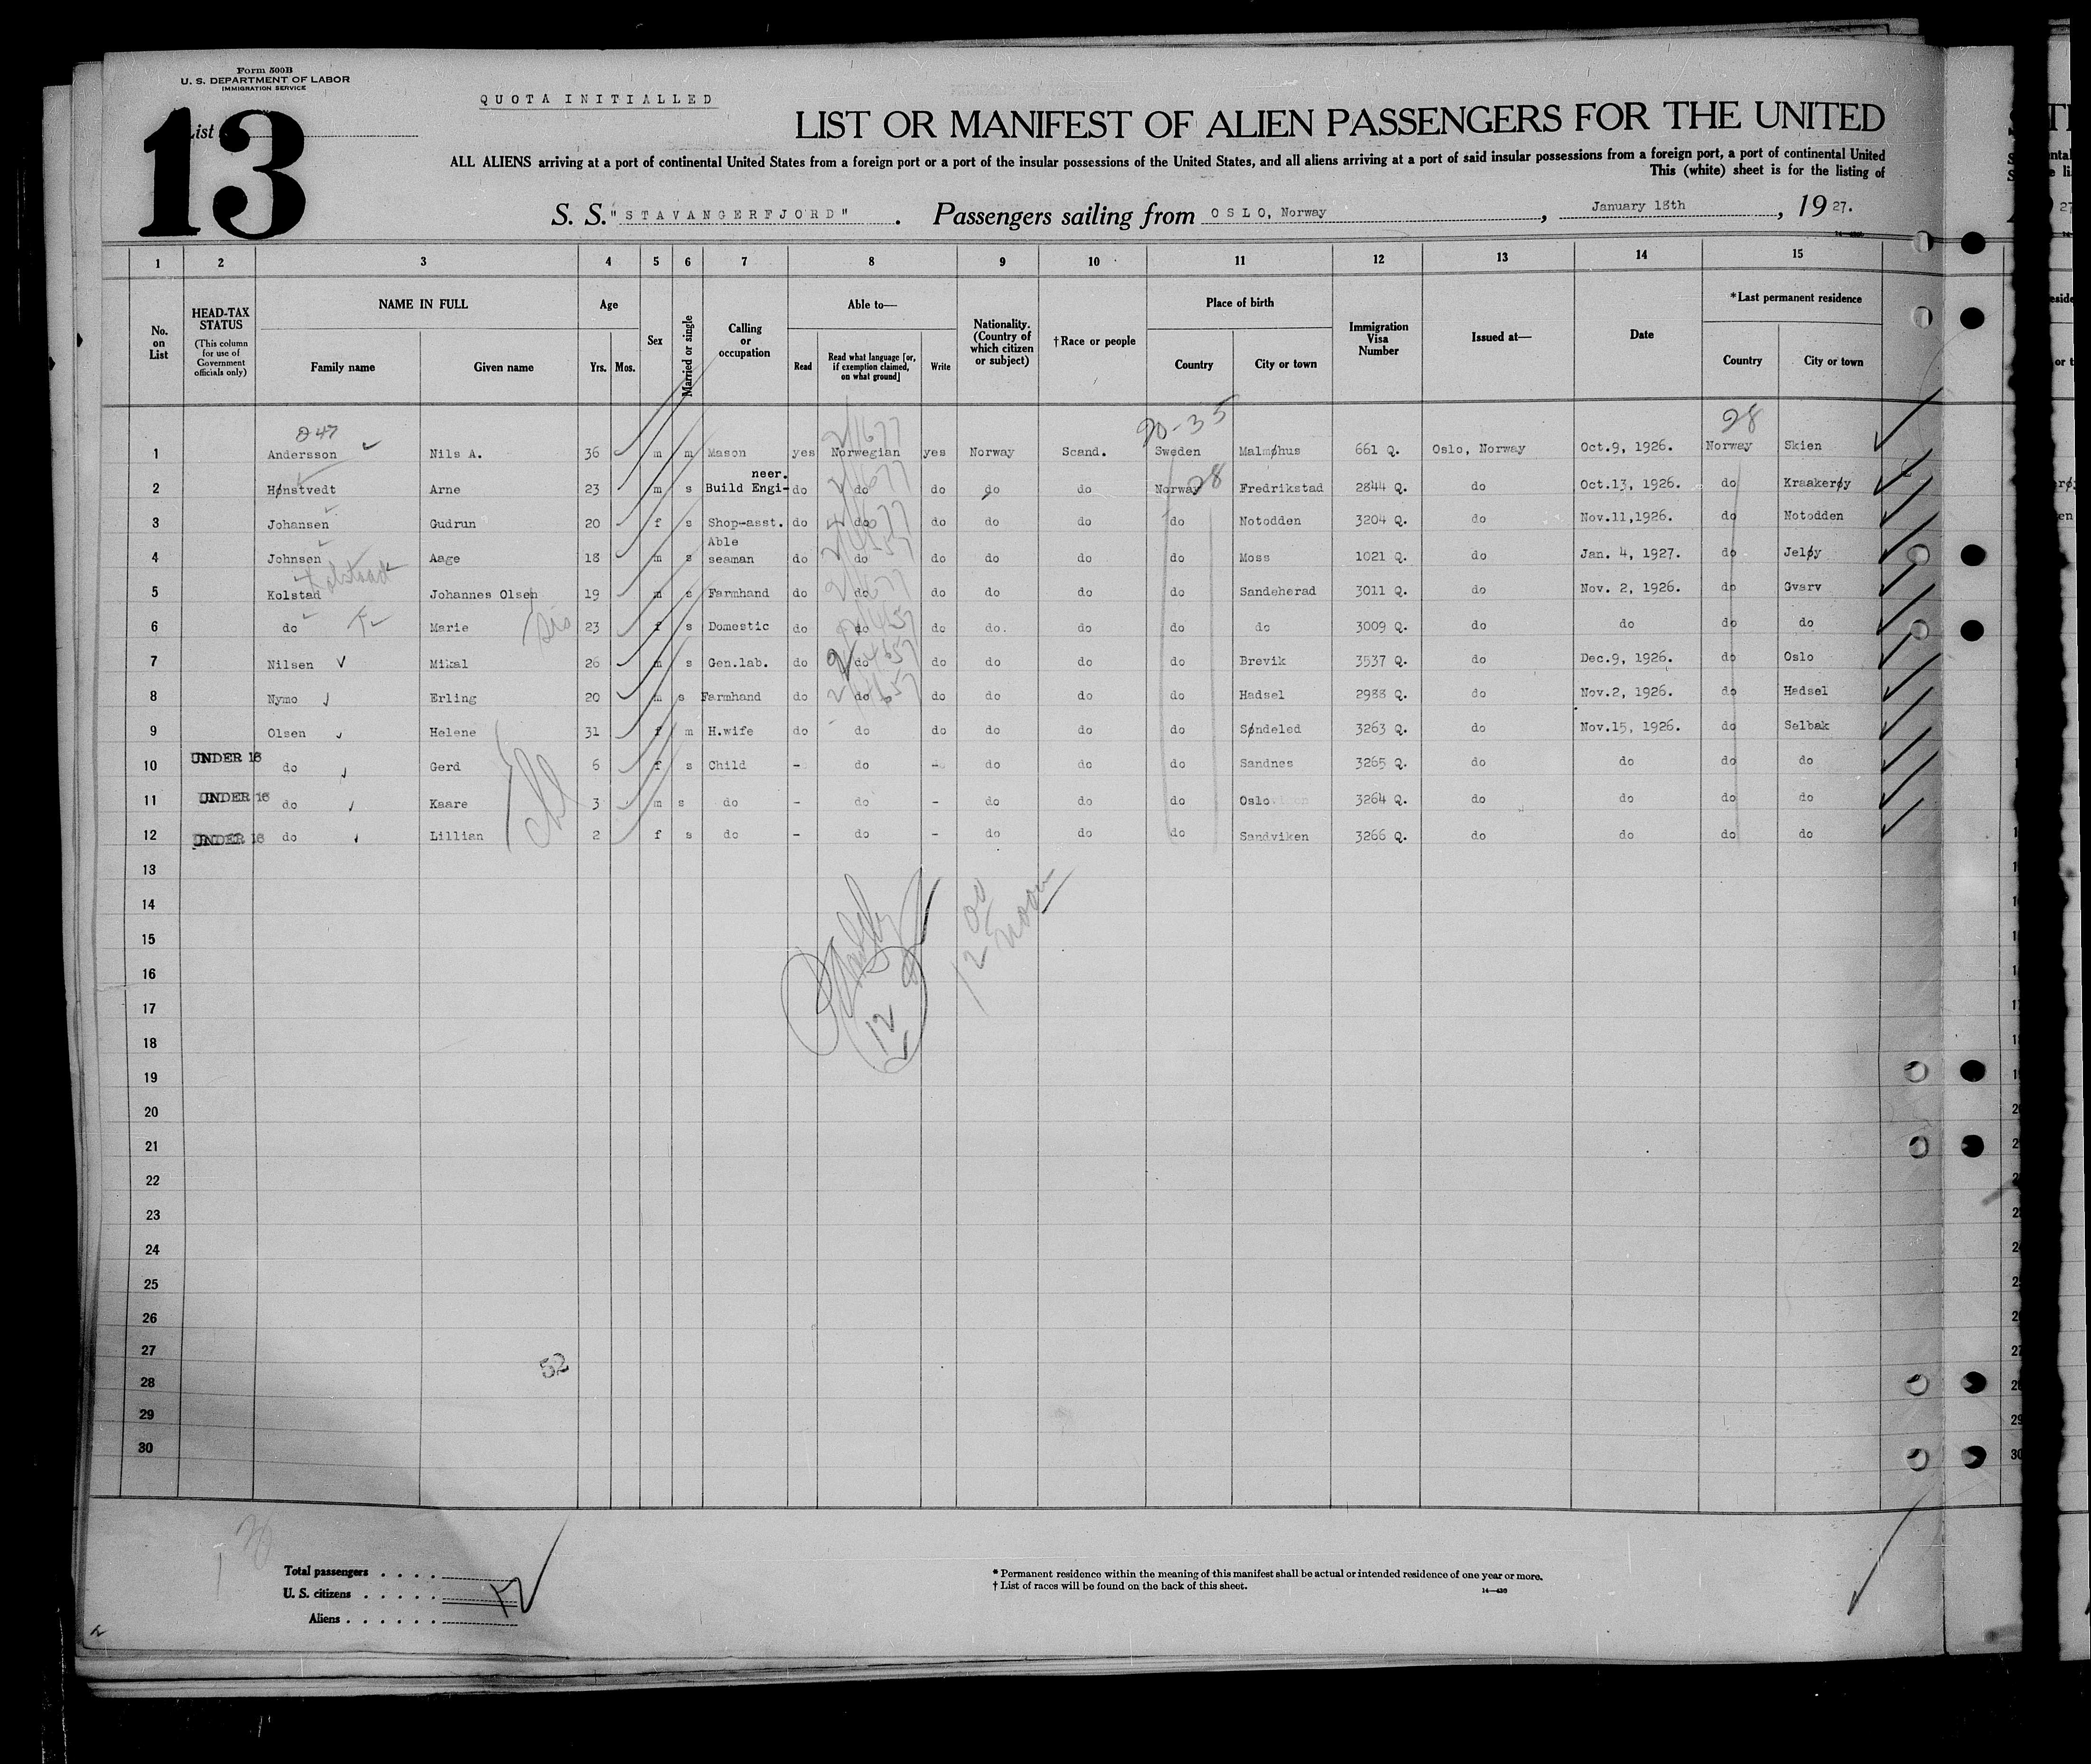 Form 500B
U. S. DEPARTMENT OF LABOR
IMMIGRATION SERVICE
List
13
QUOTA INITIALLED
LIST OR MANIFEST OF ALIEN PASSENGERS FOR THE UNITED
ALL ALIENS arriving at a port of continental United States from a foreign port or a port of the insular possessions of the United States, and all aliens arriving at a port of said insular possessions from a foreign port, a port of continental United
This (white) sheet is for the listing of
S. S. "STAVANGERFJORD". Passengers sailing from OSLO, Norway, January 18th, 1927.
1 2 3 4 5 6 7 8 9 10 11 12 13 14 15
No. on List
HEAD-TAX STATUS
(This column for use of Government officials only)
NAME IN FULL
Family name Given name
Age
Yrs. Mos.
Sex
Married or single
Calling or occupation
Able to—
Read Read what language [or, if exemption claimed, on what ground] Write
Nationality. (Country of which citizen or subject)
†Race or people
Place of birth
Country City or town
Immigration Visa Number
Issued at—
Date
*Last permanent residence
Country City or town
247 2/1677 70-35 28
1 Andersson Nils A. 36 m m Mason yes Norwegian yes Norway Scand. Sweden Malmøhus 661 Q. Oslo, Norway Oct.9, 1926. Norway Skien
2 Hønstvedt Arne 23 m s Build Engi-neer. do do do do do Norway 28 Fredrikstad 2844 Q. do Oct.13, 1926. do Kraakerøy
3 Johansen Gudrun 20 f s Shop-asst. do do do do do do Notodden 3204 Q. do Nov.11,1926. do Notodden
4 Johnsen Aage 18 m s Able seaman do do do do do do Moss 1021 Q. do Jan. 4, 1927. do Jeløy
Kolstad
5 Kolstad Johannes Olsen 19 m s Farmhand do do do do do do Sandeherad 3011 Q. do Nov. 2, 1926. do Gvarv
6 do Marie sis 23 f s Domestic do do do do. do do do 3009 Q. do do do do
7 Nilsen Mikal 26 m s Gen.lab. do do do do do do Brevik 3537 Q. do Dec.9, 1926. do Oslo
8 Nymo Erling 20 m s Farmhand do do do do do do Hadsel 2988 Q. do Nov.2, 1926. do Hadsel
9 Olsen Helene 31 f m H.wife do do do do do do Søndeled 3263 Q. do Nov.15, 1926. do Selbak
10 UNDER 16 do Gerd 6 f s Child - do - do do do Sandnes 3265 Q. do do do do
11 UNDER 16 do Kaare 3 m s do - do - do do do Oslo 3264 Q. do do do do
12 UNDER 16 do Lillian 2 f s do - do - do do do Sandviken 3266 Q. do do do do
13
14
15
16
17
18
19
20
21
22
23
24
25
26
27
28
29
30
12
12 00 noon
52
Total passengers . . . .
U. S. citizens . . . . . 12
Aliens . . . . . .
* Permanent residence within the meaning of this manifest shall be actual or intended residence of one year or more.
† List of races will be found on the back of this sheet.
14—430